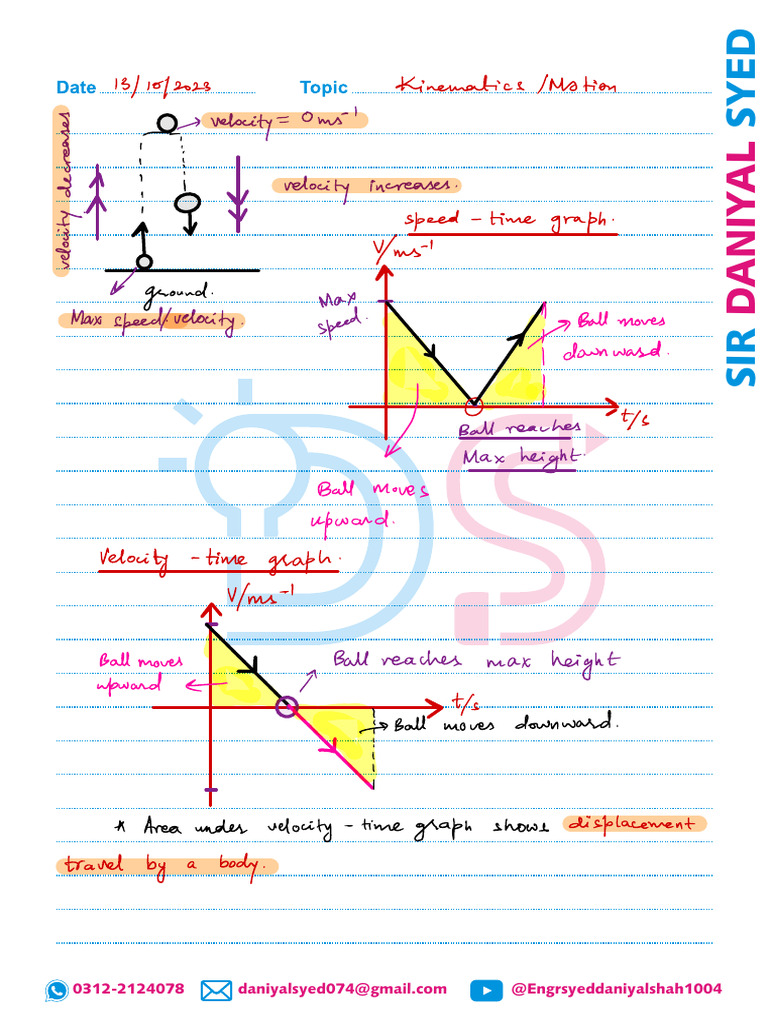 Date 13/10/2023 Topic Kinematics/Motion
SIR DANIYAL SYED
velocity = 0 ms⁻¹
velocity decreases
velocity increases.
ground.
Max speed/velocity.
speed - time graph.
V/ms⁻¹
Max
speed.
Ball moves
downward.
t/s
Ball reaches
Max height.
Ball moves
upward.
Velocity - time graph.
V/ms⁻¹
Ball moves
upward
Ball reaches max height
t/s
Ball moves downward.
* Area under velocity - time graph shows displacement
travel by a body.
0312-2124078 daniyalsyed074@gmail.com @Engrsyeddaniyalshah1004